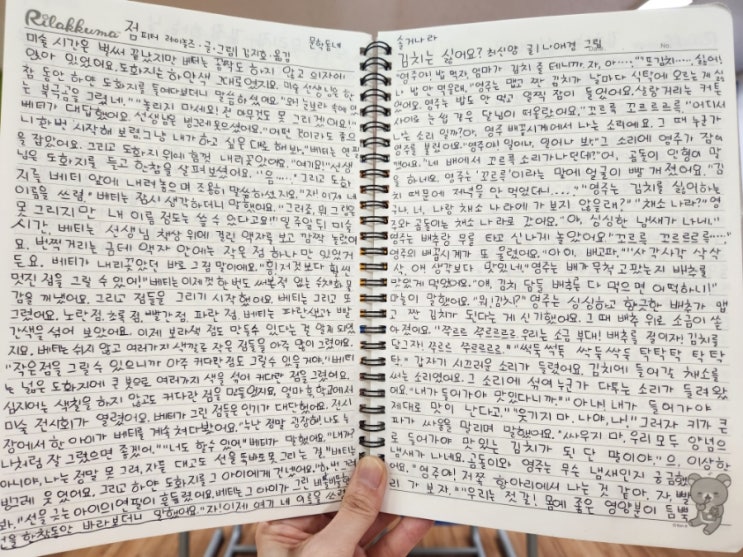 Rilakkuma 점 피터 레이놀즈·글·그림 김지효 옮김 문학동네
미술 시간은 벌써 끝났지만 베티는 꼼짝도 하지 않고 의자에
앉아 있었어요. 도화지는 하얀색 그대로였지요. 미술 선생님은 한
참 동안 하얀 도화지를 들여다보더니 말씀하셨어요. "와! 눈보라 속에 있
는 북극곰을 그렸네." "놀리지 마세요! 전 아무것도 못 그리겠어요!"
베티가 대답했어요. 선생님은 빙그레 웃으셨어요. "어떤 것이라도 좋으
니 한번 시작해 보렴. 그냥 네가 하고 싶은 대로 해봐." 베티는 연필
을 잡았어요. 그리고 도화지 위에 힘껏 내리꽂았어요. "여기요!" 선생
님은 도화지를 들고 한참을 살펴보셨어요. "음……." 그리고 도화
지를 베티 앞에 내려놓으며 조용히 말씀하셨지요. "자! 이제 네
이름을 쓰렴." 베티는 잠시 생각하더니 말했어요. "그러죠, 뭐. 그림은
못 그리지만 내 이름 정도는 쓸 수 있다고요!" 일주일 뒤 미술
시간, 베티는 선생님 책상 위에 걸린 액자를 보고 깜짝 놀랐어
요. 번쩍거리는 금테 액자 안에는 작은 점 하나만 있었거
든요. 베티가 내리꽂았던 바로 그 점 말이에요. "흥! 저것보다 훨씬
멋진 점을 그릴 수 있어!" 베티는 이제껏 한 번도 써본 적 없는 수채화 물
감을 꺼냈어요. 그리고 점들을 그리기 시작했어요. 베티는 그리고 또
그렸어요. 노란 점, 초록 점, 빨간 점, 파란 점. 베티는 파란색과 빨
간색을 섞어 보았어요. 이제 보라색 점도 만들 수 있다는 걸 알게 되었
지요. 베티는 쉬지 않고 여러가지 색깔로 작은 점들을 아주 많이 그렸어요.
"작은 점을 그릴 수 있으니까 아주 커다란 점도 그릴 수 있을 거야." 베티
는 넓은 도화지에 큰 붓으로 여러가지 색을 섞어 커다란 점을 그렸어요.
심지어는 색칠을 하지 않고도 커다란 점을 만들었지요. 얼마 후 학교에서
미술 전시회가 열렸어요. 베티가 그린 점들은 인기가 대단했어요. 전시
장에서 한 아이가 베티를 계속 쳐다봤어요. "누난 정말 굉장해! 나도 누
나처럼 잘 그렸으면 좋겠어." "너도 할 수 있어." 베티가 말했어요. "내가?
아니야, 나는 정말 못 그려, 자를 대고도 선을 똑바로 못 그리는 걸." 베티는
빙그레 웃었어요. 그리고 하얀 도화지를 그 아이에게 건넸어요. "한번 그려
봐." 선을 긋는 아이의 연필이 흔들렸어요. 베티는 그 아이가 그린 비뚤비뚤한
선을 한참동안 바라보더니 말했어요. "자! 이제 여기 네 이름을 쓰렴."
숨거나라
김치는 싫어요? 최신양 글 | 나애경 그림
"영주야! 밥 먹자. 엄마가 김치 줄 테니까. 자, 아……." "또 김치……. 싫어!
나 밥 안 먹을래." 영주는 맵고 짠 김치가 날마다 식탁에 오르는 게 싫
었어요. 영주는 밥도 안 먹고 일찍 잠이 들었어요. 살랑거리는 커튼
사이로는 쉼 같은 달님이 떠올랐어요. "꼬르륵 꼬르르르륵." "어디서
나는 소리일까?" 아, 영주 배꼽시계에서 나는 소리예요. 그 때 누군가
영주를 불렀어요. "영주야! 일어나, 일어나 봐." 그 소리에 영주가 잠이
깼어요. "네 배에서 꼬르륵 소리가 나던데?" 어, 곰돌이 인형이 말
을 하네요. 영주는 '꼬르륵'이라는 말에 얼굴이 빨개졌어요. "김
치 때문에 저녁을 안 먹었더니……." "영주는 김치를 싫어하는
구나. 너, 나랑 채소 나라에 가 보지 않을래?" "채소 나라?" 영
주와 곰돌이는 채소 나라로 갔어요. "아, 싱싱한 냄새가 나네."
영주는 배추랑 무를 타고 신나게 놀았어요. "꼬르륵 꼬르르르륵……."
영주의 배꼽시계가 또 울렸어요. "아이, 배고파." "사각사각 삭삭
삭, 야 생각보다 맛있네." 영주는 배가 무척 고팠는지 배추를
맛있게 먹었어요. "얘, 김치 담글 배추를 다 먹으면 어떡하니!"
마늘이 말했어요. "뭐! 김치?" 영주는 싱싱하고 향긋한 배추가 맵
고 짠 김치가 된다는 게 신기했어요. 그 때 배추 위로 소금이 쏟
아졌어요. "쭈르르 쭈르르르르 우리는 소금 부대! 배추를 절이자! 김치를
담그자! 쭈르르 쭈르르르르." "썩둑썩둑 싹둑싹둑 탁탁탁 탁탁
탁." 갑자기 시끄러운 소리가 들렸어요. 김치에 들어갈 채소를
써는 소리였어요. 그 소리에 섞여 누군가 다투는 소리가 들려왔
어요. "내가 들어가야 맛있다니까." "아냐! 내가 들어가야
제대로 맛이 난다고." "웃기지 마. 나야, 나!" 그러자 키가 큰
파가 싸움을 말리며 말했어요. "싸우지 마. 우리 모두 양념으
로 들어가야 맛있는 김치가 된단 말이야." "으, 이상한
냄새가 나네요. 곰돌이와 영주는 무슨 냄새인지 궁금했
어요. "영주야! 저쪽 항아리에서 나는 것 같아. 자, 빨
리 가 보자." "우리는 젓갈! 몸에 좋은 영양분이 듬뿍